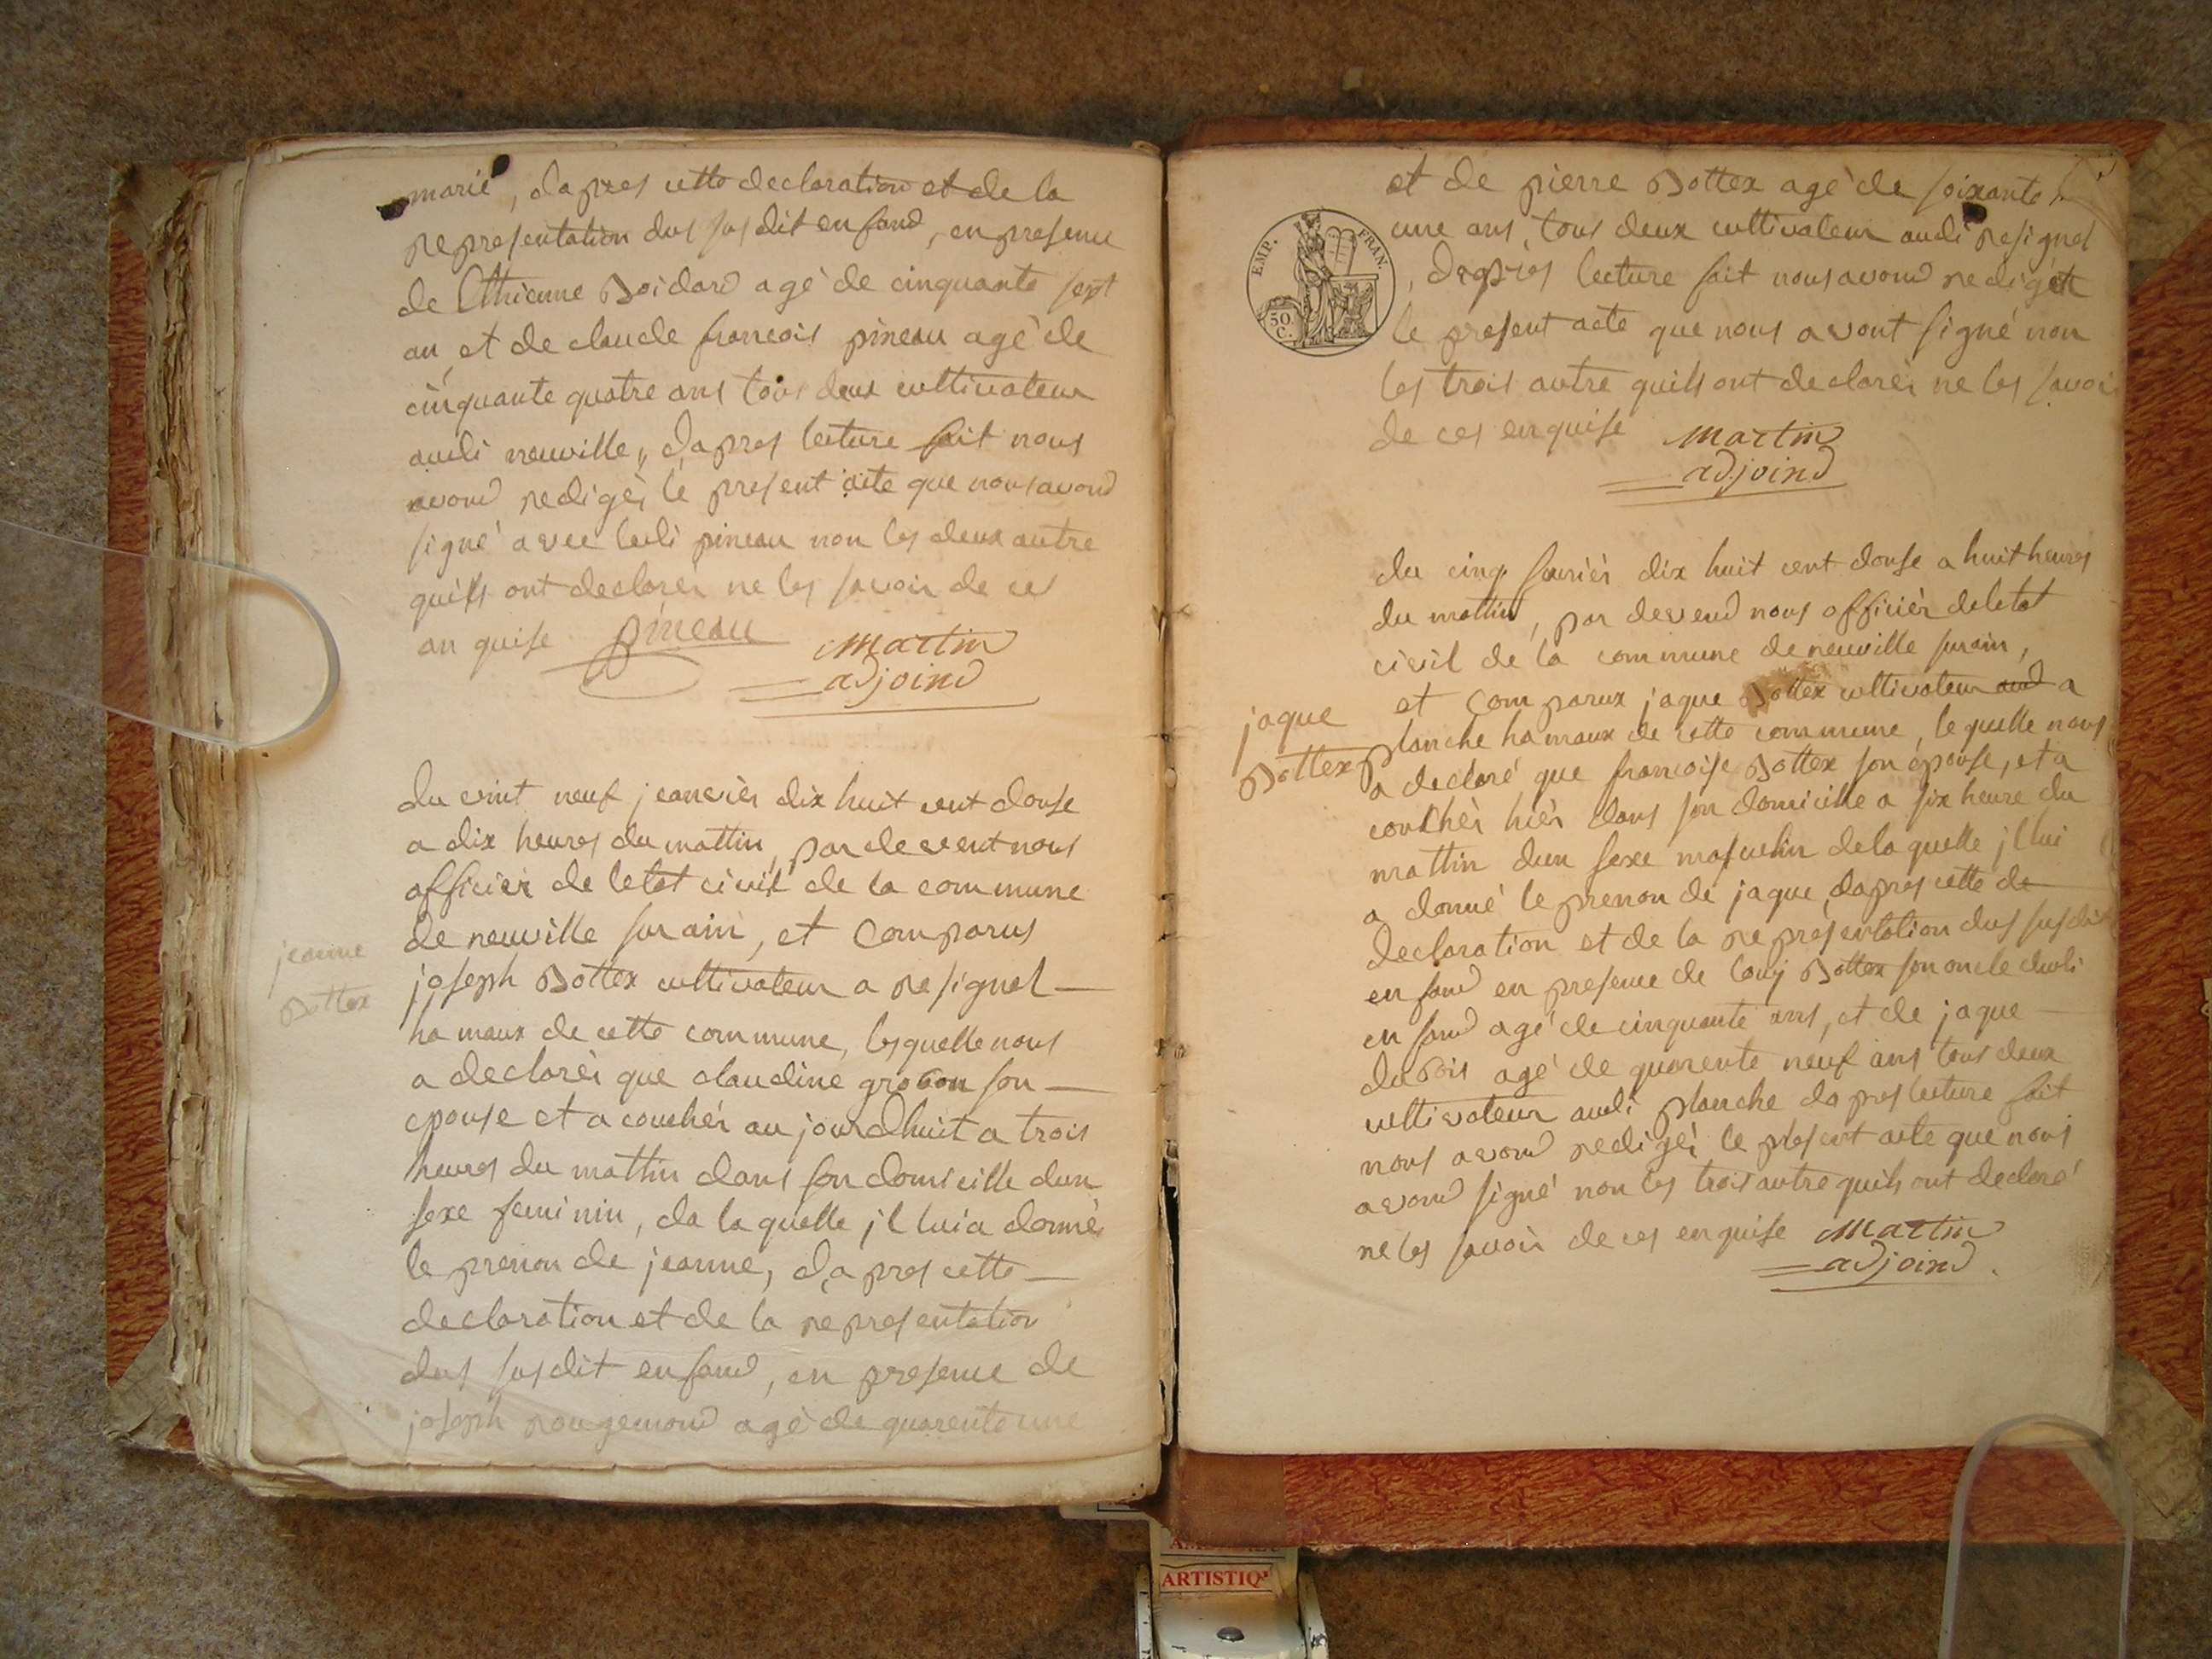 marié, dapres cette declaration et de la
representation dus susdit enfand, en presence
de Ethienne Boidard agé de cinquante sept
an, et de claude francois pineau agé de
cinquante quatre ans tous deux cultivateur
audi neuville, dapres lecture fait nous
avond redigér le present acte que nous avond
signé avec ledi pineau non les deux autre
quils ont declarér ne les savoir de ces
an quise pineau Martin
adjoind
jeanne
Bottex
du vint neuf jeanvièr dix huit cent douse
a dix heures du mattin, par devent nous
officièr de letat civil de la commune
de neuville sur ain, et Comparus
joseph Bottex cultivateur a resignel
hamaux de cette commune, lesquelle nous
a declarér que claudine grobon son
epouse et a couchér au jourdhuit a trois
heures du mattin dans son domicille dun
sexe feminin, da la quelle jl lui a donnér
le prenon de jeanne, dapres cette
declaration et de la representation
dus susdit enfand, en presence de
joseph rougemond agé de quarente une
et de pierre Bottex agé de soixante
une ans, tous deux cultivateur audi resignel
EMP. FRAN.
50. C.
, dapres lecture fait nous avond redigér
le present acte que nous avont signé non
les trois autre quils ont declarér ne les savoir
de ces enquise Martin
adjoind
du cinq fevrièr dix huit cent douse a huit heures
du mattin, par devend nous officièr de letat
civil de la commune de neuville sur ain,
jaque
Bottex
et Comparux jaque Bottex cultivateur aud a
planche hamaux de cette commune, le quelle nous
a declaré que francoise Bottex son épouse, et a
couchèr hièr dans son domicille a six heure du
mattin dun sexe masculin de la quelle jl lui
a donné le prenon de jaque, dapres cette de
declaration et de la representation dus susdit
enfand en presence de Louy Bottex son oncle dudi
enfand agé de cinquante ans, et de jaque
dubois agé de quarente neuf ans tous deux
cultivateur audi planche dapres lecture fait
nous avond redigér le present acte que nous
avond signé non les trois autre quils ont declaré
ne les savoir de ces enquise Martin
adjoind.
ARTISTIQ